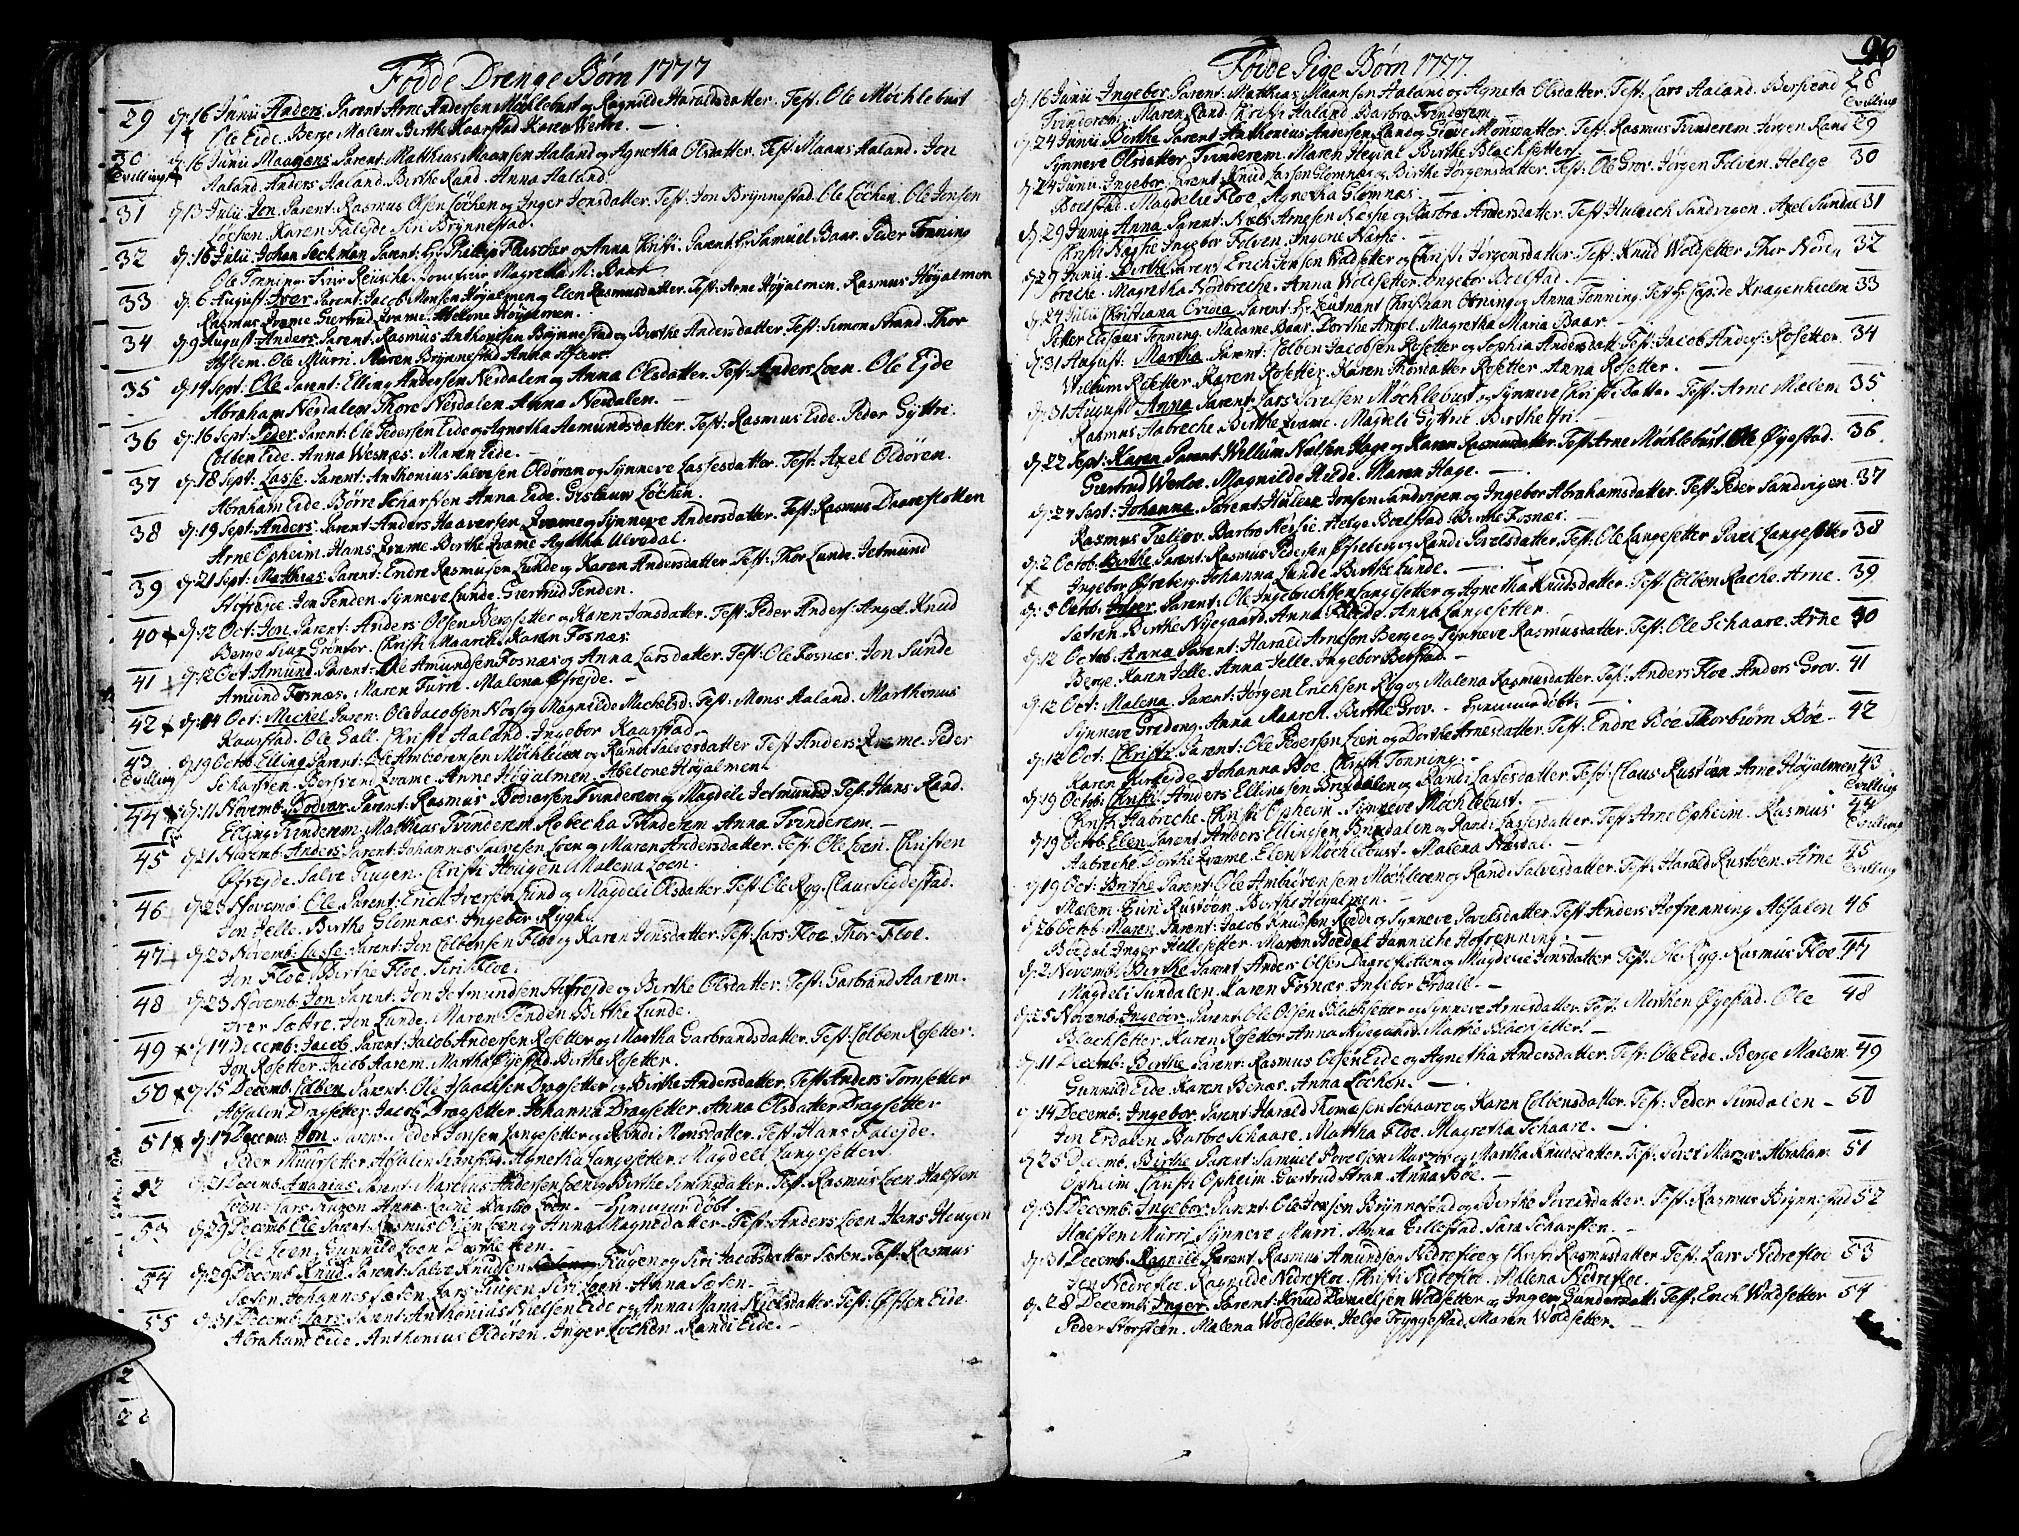 Fødde Drenge Børn 1777
29 d: 16 Junii Anders. Parent: Arne Andersen Möchlebust og Ragnilde Haraldsdatter. Test: Ole Möchlebust
Ole Eide. Berge Malem Berthe Kaarstad Karen
30 d: 16 Junii Maanens Parent: Matthias Maansen Aaland og Agnetha Olsdatter. Test: Maans Aaland. Jon
Tvilling Aaland. Anders Aaland. Birthe Rand. Anna Aaland
31 d: 13 Julii Jon. Parent: Rasmus Olsen Löchen og Inger Jonsdatter. Test: Jon Brÿnnestad. Ole Löchen. Ole Jonsen
Löchen. Karen Faleide. Siri Brÿnnestad.
32 d: 16 Julii Johan Seckman Parent: Hr Philip Fleischer og Anna Christi. Parent: Hr Samuel Baar. Peder Tonning
Ole Tonning. Magretha M: Baar
33 d: 6 August: Iver Parent: Jacob Monsen Höjalmen og Elen Rasmusdatter. Test: Arne Höjalmen. Rasmus Höjalmen
Rasmus Qvame. Giertrud Qvame. Abelone Höjalmen.
34 d: 9 August: Anders. Parent: Rasmus Anthonisen Brÿnnestad og Birthe Andersdatter. Test: Simon Strand. Thor
Aaslem. Ole Murri. Maren Brÿnnestad Anna
35 d: 14 Sept: Ole Parent: Elling Andersen Nesdalen og Anna Olsdatter. Test: Anders Loen. Ole Eide
Abraham Nesdalen Thore Nesdalen. Anna Nesdalen.
36 d: 16 Sept: Peder. Parent: Ole Pedersen Eide og Agnetha Aamundsdatter. Test: Rasmus Eide. Peder Gÿttre.
Colben Eide. Anna Wesnæs. Maren Eide.
37 d: 18 Sept: Lasse. Parent: Anthonius Salvesen Oldören og Sÿnneve Lassesdatter. Test: Axel Oldören.
Abraham Eide Börre Scharsten Anna Eide. Gislaug Löchen.
38 d: 19 Sept: Anders. Parent: Anders Haaversen Qvame og Sÿnneve Andersdatter. Test: Rasmus Daarefletten
Arne Opheim. Hans Qvame. Berthe Qvame. Agatha Ulvedal.
39 d: 21 Sept: Matthias Parent: Endre Rasmusen Lunde og Karen Andersdatter. Test: Thor Lunde. Jetmund
Jon Tenden. Sÿnneve Lunde. Giertrud Tenden.
40 d: 12 Oct: Jon. Parent: Anders Olsen Bergsetter og Karen Jonsdatter. Test: Peder Anders: Angel. Knud
Berge Siur Christi Maarch. Karen Fosnæs
41 d: 12 Oct: Amund. Parent: Ole Amundsen Fosnæs og Anna Larsdatter. Test: Ole Fosnæs. Jon Sunde
Amund Fosnæs. Maren Furre. Malena Øfrejde.
42 d: 14 Oct: Michel Paren: Ole Jacobsen Nos og Magnilde Machelsd: Test: Mons Aaland. Marthonus
Kaarstad. Ole Gall. Christi Aaland. Ingebor Kaarstad.
43 d: 19 Octob: Elling Parent: Ole Ambiörensen Möchleöen og Randi Salvesdatter Test: Anders Qvame. Peder
Tvilling Scharsten. Bersven Qvame. Anne Höjalmen. Abelone Höjalmen.
44 d: 11 Novemb: Bodvar. Parent: Rasmus Bodvarsen Tvinderem og Magdeli Jetmundsd. Test: Hans Rand.
Elling Tvinderem. Matthias Tvinderem. Rebecha Tvinderem Anna Tvinderem.
45 d: 21 Novemb: Anders. Parent: Johannes Salvesen Loen og Maren Andersdatter. Test: Ole Loen. Christen
Øfrejde. Salve Tiugen. Christi Hougen. Malena Loen.
46 d: 23 Novemb: Ole. Parent: Erich Iversen Lund og Magdeli Olsdatter. Test: Ole Rÿg. Claus
Jon Jelle. Birthe Glomnæs. Ingebor Rÿgh.
47 d: 23 Novemb: Lasse. Parent: Jon Colbensen Floe og Karen Jonsdatter. Test: Lars Floe. Thor Floe.
Jon Floe. Birthe Floe. Siri Floe.
48 d: 23 Novemb: Jon Parent: Jon Jetmundsen og Berthe Olsdatter. Test: Garbrand Aarem.
Iver Sættre. Jon Lunde. Maren Tenden Birthe Lunde.
49 d: 14 Decemb: Jacob. Parent: Jacob Andersen Rosetter og Martha Garbrandsdatter. Test: Colben Rosetter.
Jon Rosetter. Jacob Aarem. Martha Øÿestad. Birthe Rosetter.
50 d: 15 Decemb: Colben. Parent: Ole Absalonsen Dragsetter og Birthe Andersdatter. Test: Anders Tornsetter
Absalon Dragsetter. Jacob Dragsetter. Johanna Dragsetter. Anna Olsdatter Dragsetter
51 d: 17 Decemb: Jon Parent: Peder Jonsen Langesetter og Randi Monsdatter. Test: Hans Falejde.
Peder Absalon Agnetha Langesetter. Magdeli Langesetter
52 d: 21 Decemb: Ananias. Parent: Marchus Andersen Loen og Birthe Simonsdatter. Test: Rasmus Loen Halsten
Loen. Lars Tiugen Anna Barbo Loen. – Hjemme döbt.
53 d: 29 Decemb: Ole Parent: Rasmus Olsen Loen og Anna Magnesdatter. Test: Anders Loen. Hans Hougen
Ole Loen. Gunnild Loen Dorthe Loen.
54 d: 29 Decemb: Knud. Parent: Salve Knudsen Tiugen og Siri Jacobsdatter Sæten. Test: Rasmus
Sæten. Johannes Sæten. Lars Tiugen. Siri Loen. Anna Sæten.
55 d: 31 Decemb: Lars. Parent: Anthonius Nielsen Eide og Anna Maria Nielsdatter. Test: Østen Eide
Abraham Eide. Anthonius Oldören. Inger Löchen. Randi Eide.
Fødde Pige Børn 1777.
96
d: 16 Junii Ingebor. Parent: Matthias Maansen Aaland og Agneta Olsdatter. Test: Lars Aaland. Bersvend 28
Tvinderem. Maren Rand. Christi Aaland. Barbra Tvinderem Tvilling
d: 24 Junii Berthe. Parent: Anthonius Andersen Rand og Gieve Monsdatter. Test: Rasmus Tvinderem. Jörgen Rand 29
Sÿnneve Olsdatter Tvinderem. Maren Hegdal Birthe Blachsetter.
d: 24 Junii: Ingebor. Parent: Knud Larsen Glomnæs og Birthe Jörgensdatter. Test: Ole Grov. Jörgen Folven. Helge 30
Boelstad. Magdeli Floe. Agnetha Glomnæs.
d: 29 Junii Anna. Parent: Niels Arnesen Neshe og Barbra Andersdatter. Test: Hulvich Sandvigen. Axel Sundal 31
Christi Ingebor Folven. Ingerie Nashe.
d: 29 Junii. Birthe. Parent: Erich Jensen Woldsetter og Christi Jörgensdatter. Test: Knud Woldsetter. Thor Norre 32
breche. Magretha Nordbreche. Anna Woldsetter. Ingebor Boelstad.
d: 24 Julii Christiana Parent: Hr Leutnant Christian Otning og Anna Tonning. Test: Hr Capt: de Kragenhielm 33
Petter Elisæus Tonning. Madame Baar. Dorthe Angel. Magretha Maria Baar.
d: 31 August: Martha. Parent: Colben Jacobsen Rosetter og Sophia Andersdatt: Test: Jacob Anders: Rosetter 34
Wilum Rosetter. Karen Rosetter. Karen Thorsdatter Rosetter. Anna Rosetter.
d: 31 August: Anna. Parent: Lars Möchlebust og Sÿnneve Christidatter. Test: Arne Mælem 35
Rasmus Aabreche. Birthe Qvame. Magdeli Gÿttrie. Birthe Ÿri.
d: 22 Sept: Karen Parent: Willum Nielsen Hage og Karen Rasmusdatter. Test: Arne Möchlebust. Ole Øÿestad. 36
Giertrud Magnilde Hilde. Maren Hage.
d: 27 Sept: Johanna. Parent: Hulvich Jonsen Sandvigen og Ingebor Abrahamsdatter. Test: Peder Sandvigen. 37
Rasmus Barbo Helge Boelstad. Birthe Fosnæs.
d: 2 Octob: Birthe Parent: Rasmus Pedersen Øfreberg og Randi Povelsdatter. Test: Ole Langesetter Povel Langesetter 38
Ingebor Øfreberg. Johanna Lunde. Birthe Lunde.
d: 5 Octob: Inger. Parent: Ole Ingebrichtsen Langesetter og Agnetha Knudsdatter. Test: Colben Rache. Arne 39
Sætren Birthe Nÿegaard. Anna Anna Langesetter.
d: 12 Octob: Anna. Parent: Harald Arnesen Berge og Sÿnneve Rasmusdatter. Test: Ole Schaare. Arne 40
Berge. Karen Jelle. Anna Jelle. Ingebor Berstad.
d: 12 Oct: Malena. Parent: Jörgen Erichsen Rÿg og Malena Rasmusdatter. Test: Anders Floe. Anders Grov. 41
Sÿnneve Grodong. Anna Maarch. Birthe Grov. – Hjemme döbt.
d: 12 Oct: Christi. Parent: Ole Pedersen Loen og Dorthe Arnesdatter. Test: Endre Böe. Thorbiörn Böe. 42
Karen Johanna Böe. Christi Tonning.
d: 19 Octob: Christi: Anders Ellingsen Brixdalen og Randi Lassesdatter. Test: Claus Rustöen Arne Höjalmen 43
Christi Aabreche. Christi Opheim. Sÿnneve Möchlebust. Tvilling
d: 19 Octob: Elen. Parent: Anders Ellingsen Brixdalen og Randi Lassesdatter. Test: Arne Opheim. Rasmus 44
Aabreche. Dorthe Qvame. Elen Möchlebust. Malena Nesdal. Tvilling
d: 19 Oct: Birthe Parent: Ole Ambiörensen Möchleöen og Randi Salvesdatter. Test: Harald Rustöen. Arne 45
Mælem. Siri Rustöen. Birthe Höjalmen. Tvilling
d: 26 Octob: Maren. Parent: Jacob Knudsen og Sÿnneve Povelsdatter. Test: Anders Hofrenning. Absalon 46
Bödal. Inger Hellesetter. Maren Bödal. Janniche Hofrenning.
d: 2 Novemb: Birthe Parent: Anders Olsen Daarefletten og Magdeli Jonsdatter. Test: Ole Rÿg. Rasmus Floe. 47
Magdeli Sundalen. Karen Fosnæs. Ingebor Erdal.
d: 25 Novemb: Ingebor. Parent: Ole Olsen Blachsetter og Sÿnneve Arnesdatter. Test: Morthen Øÿestad. Ole 48
Blachsetter. Karen Rosetter. Anna Nÿegaard. Marthe Blachsetter.
d: 11 Decemb: Birthe. Parent: Rasmus Olsen Eide og Agnetha Andersdatter. Test: Ole Eide. Berge Malem 49
Gunnild Eide. Karen Benæs. Anna Löchen.
d: 14 Decemb: Ingebor. Parent: Harald Thomæsen Schaare og Karen Colbensdatter. Test: Peder Sundalen 50
Jon Erdalen. Barbro Schaare. Martha Floe. Magretha Schaare.
d: 25 Decemb: Birthe. Parent: Samuel Povelsen Marsor og Martha Knudsdatter. Test: Povel Marsor. Abraham 51
Opheim. Christi Opheim. Giertrud Anna Böe.
d: 31 Decemb: Ingebor. Parent: Ole Jonsen Brÿnnestad og Berthe Povelsdatter. Test: Rasmus Brÿnnestad 52
Halsten Murri. Sÿnneve Murri. Anna Gillestad. Sara Scharsten.
d: 31 Decemb: Ragnild. Parent: Rasmus Amundsen Nedrefloe og Christi Rasmusdatter. Test: Lars Nedrefloe 53
Jon Nedrefloe. Ragnilde Nedrefloe. Christi Nedrefloe. Malena Nedrefloe.
d: 28 Decemb: Inger. Parent: Knud Danielsen Woldsetter og Inger Gundersdatt: Test: Erich Woldsetter 54
Peder Storstöen. Malena Woldsetter. Helge Trÿggestad. Maren Woldsetter.